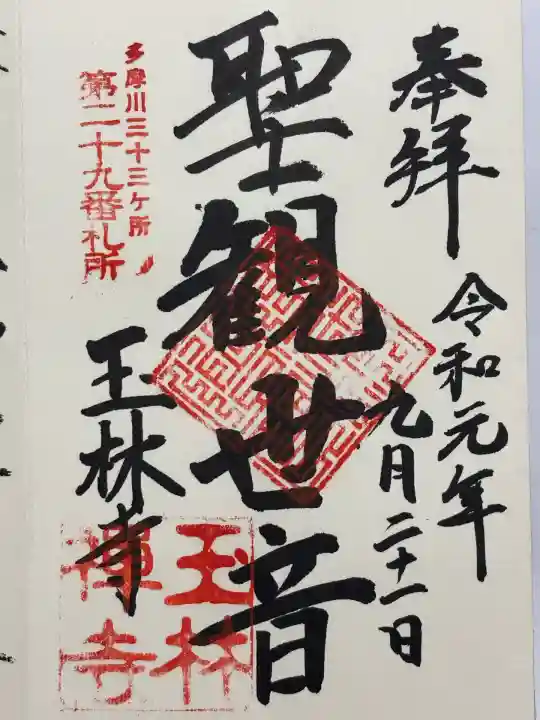 奉拝
令和元年
九月二十一日
聖観世音
多摩川三十三ケ所
第二十九番札所
玉林寺
玉林
禅寺